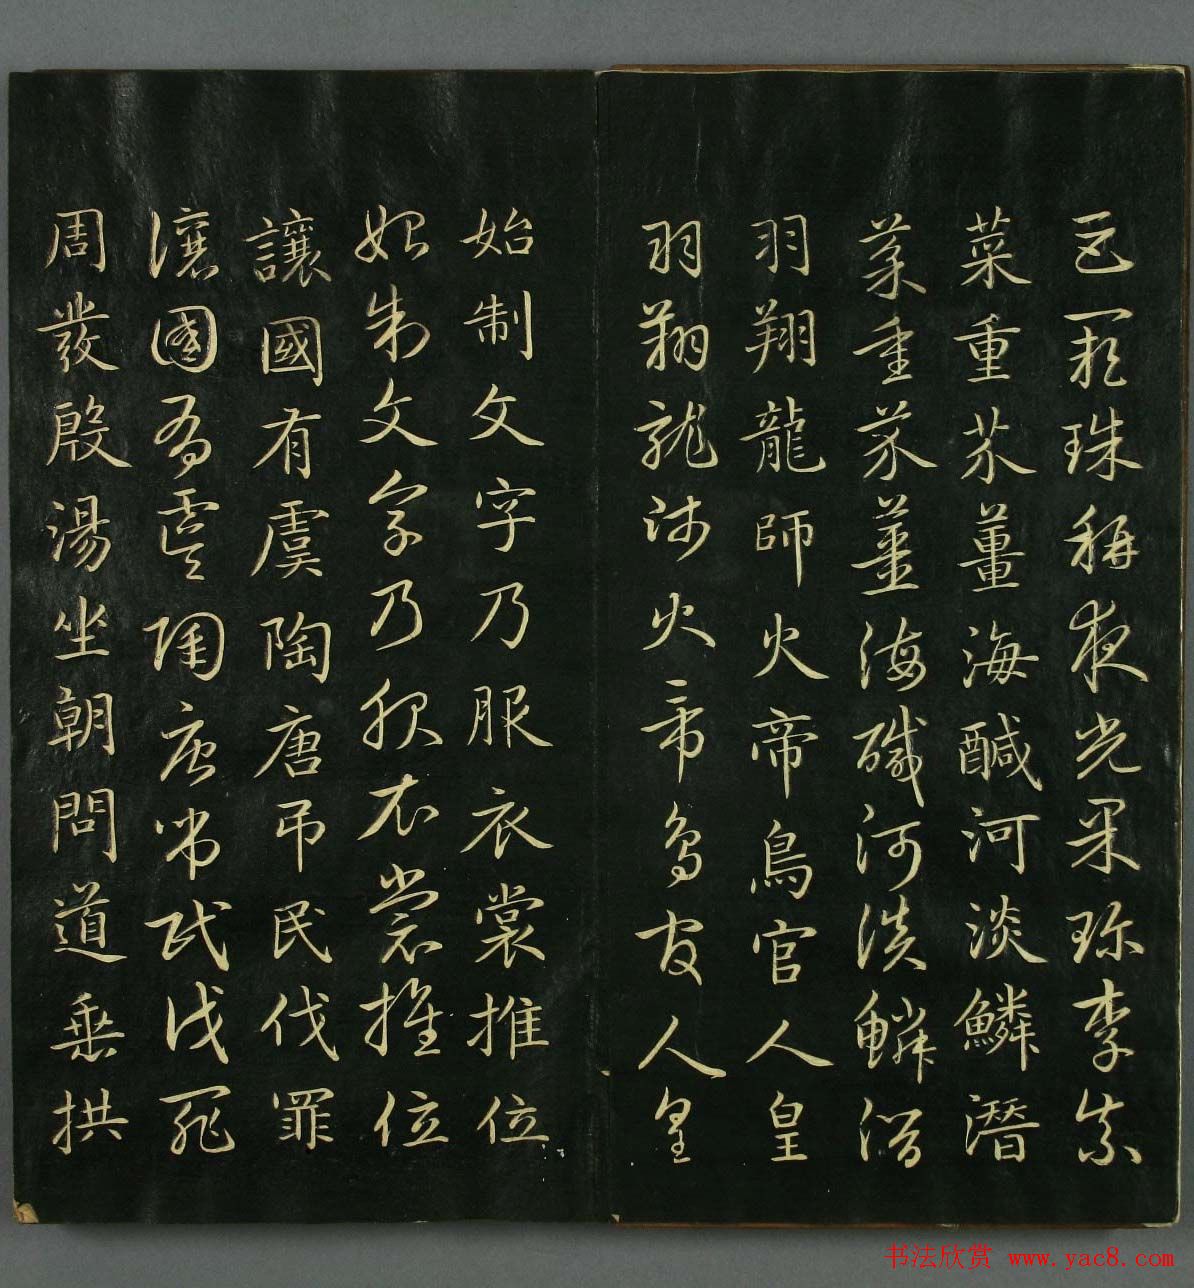 巨闕珠稱夜光果珍李柰
菜重芥薑海醎河淡鱗潛
菜重芥薑海醎河淡鱗潛
羽翔龍師火帝鳥官人皇
羽翔龍師火帝鳥官人皇
始制文字乃服衣裳推位
始制文字乃服衣裳推位
讓國有虞陶唐弔民伐罪
讓國有虞陶唐弔民伐罪
周發殷湯坐朝問道垂拱
书法欣赏 www.yac8.com